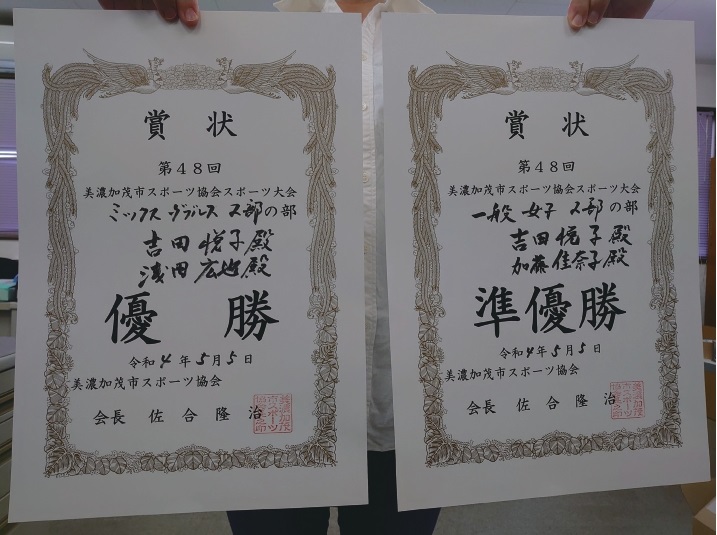 賞状
第48回
美濃加茂市スポーツ協会スポーツ大会
ミックスダブルス 2部の部
吉田悦子殿
浅田広也殿
優勝
令和4年5月5日
美濃加茂市スポーツ協会
会長 佐合隆治
賞状
第48回
美濃加茂市スポーツ協会スポーツ大会
一般女子 2部の部
吉田悦子殿
加藤佳奈子殿
準優勝
令和4年5月5日
美濃加茂市スポーツ協会
会長 佐合隆治